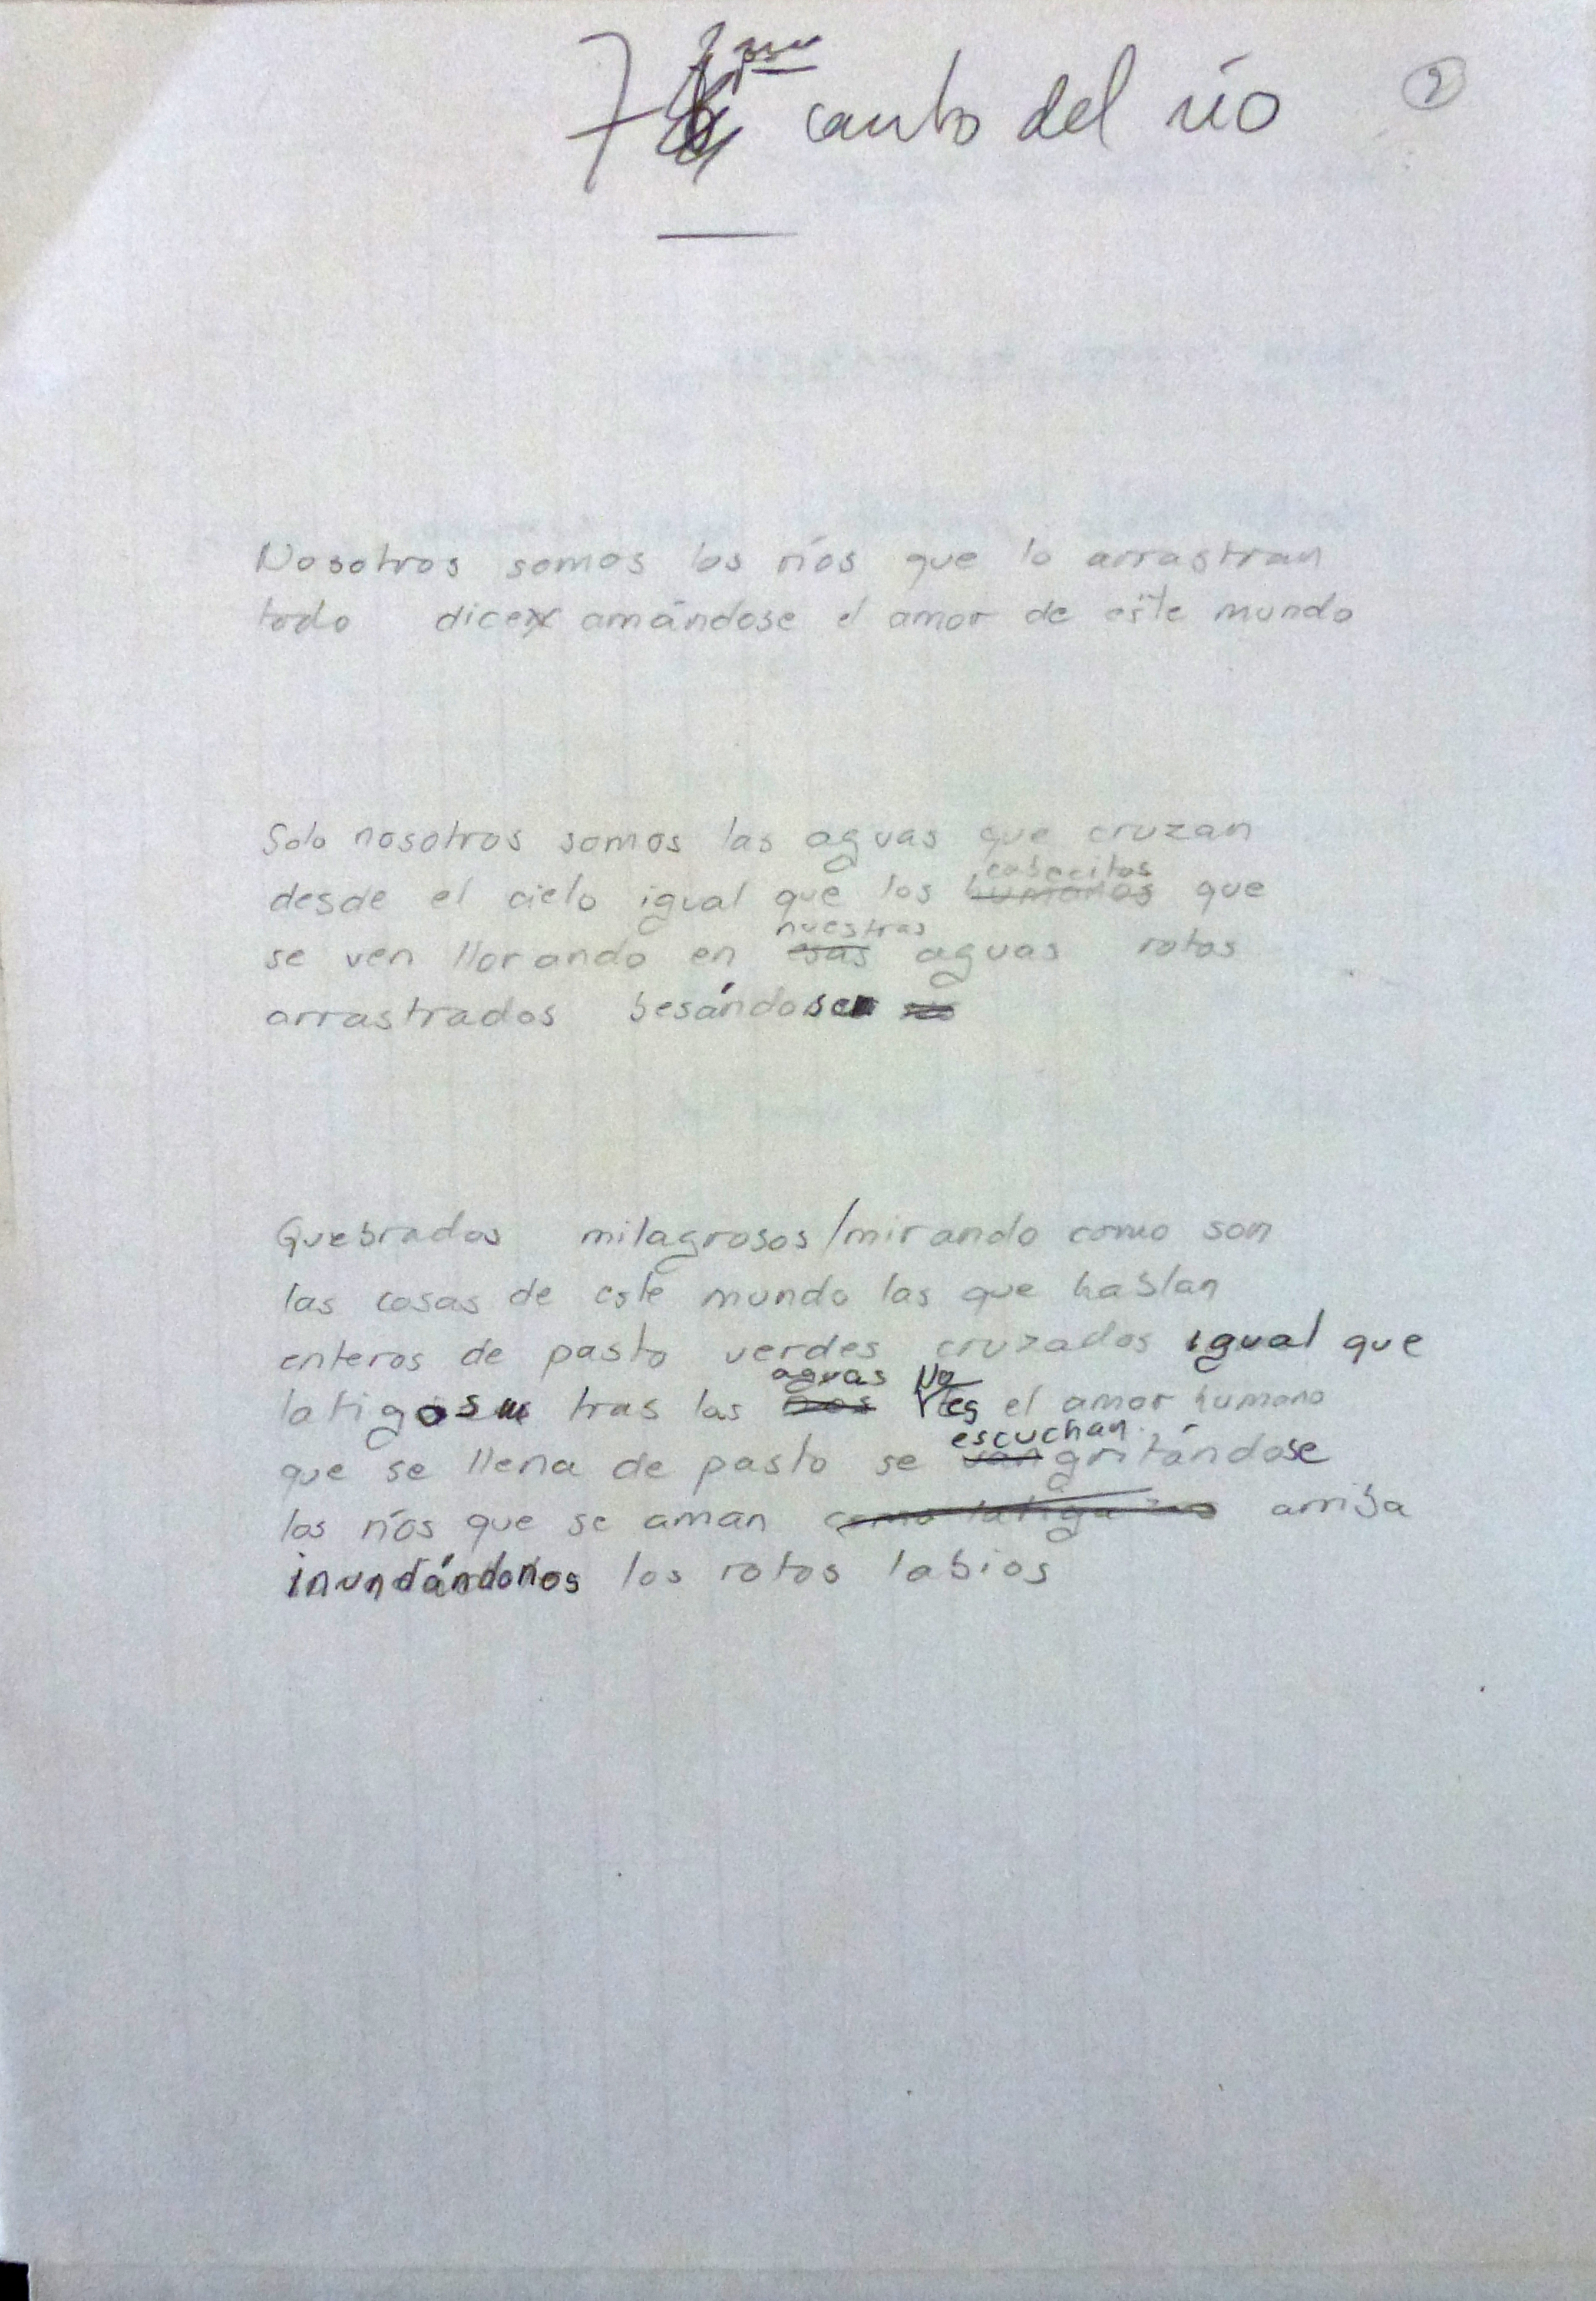 7 canto del río 2
Nosotros somos los ríos que lo arrastran
todo dice amándose el amor de este mundo
Solo nosotros somos las aguas que cruzan
cabecitas
desde el cielo igual que los humanos que
nuestras
se ven llorando en esas aguas rotas
arrastrados besándose
Quebrados milagrosos/mirando como son
las cosas de este mundo las que hablan
enteros de pasto verdes cruzados igual que
aguas No
latigos tras las es el amor humano
escuchan
que se llena de pasto se van gritándose
los ríos que se aman como latigazos arriba
inundándonos los rotos labios